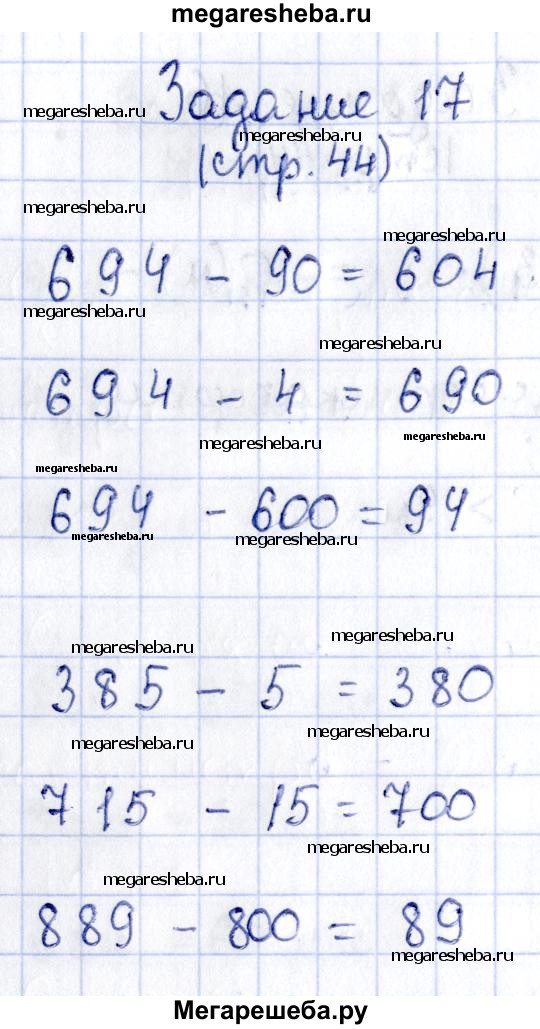 megaresheba.ru
Задание 17
megaresheba.ru
megaresheba.ru
(стр. 44)
megaresheba.ru
megaresheba.ru
694 - 90 = 604
megaresheba.ru
megaresheba.ru
694 - 4 = 690
megaresheba.ru
megaresheba.ru
megaresheba.ru
694 - 600 = 94
megaresheba.ru
megaresheba.ru
megaresheba.ru
megaresheba.ru
385 - 5 = 380
megaresheba.ru
megaresheba.ru
715 - 15 = 700
megaresheba.ru
megaresheba.ru
889 - 800 = 89
megaresheba.ru
Мегарешеба.ру